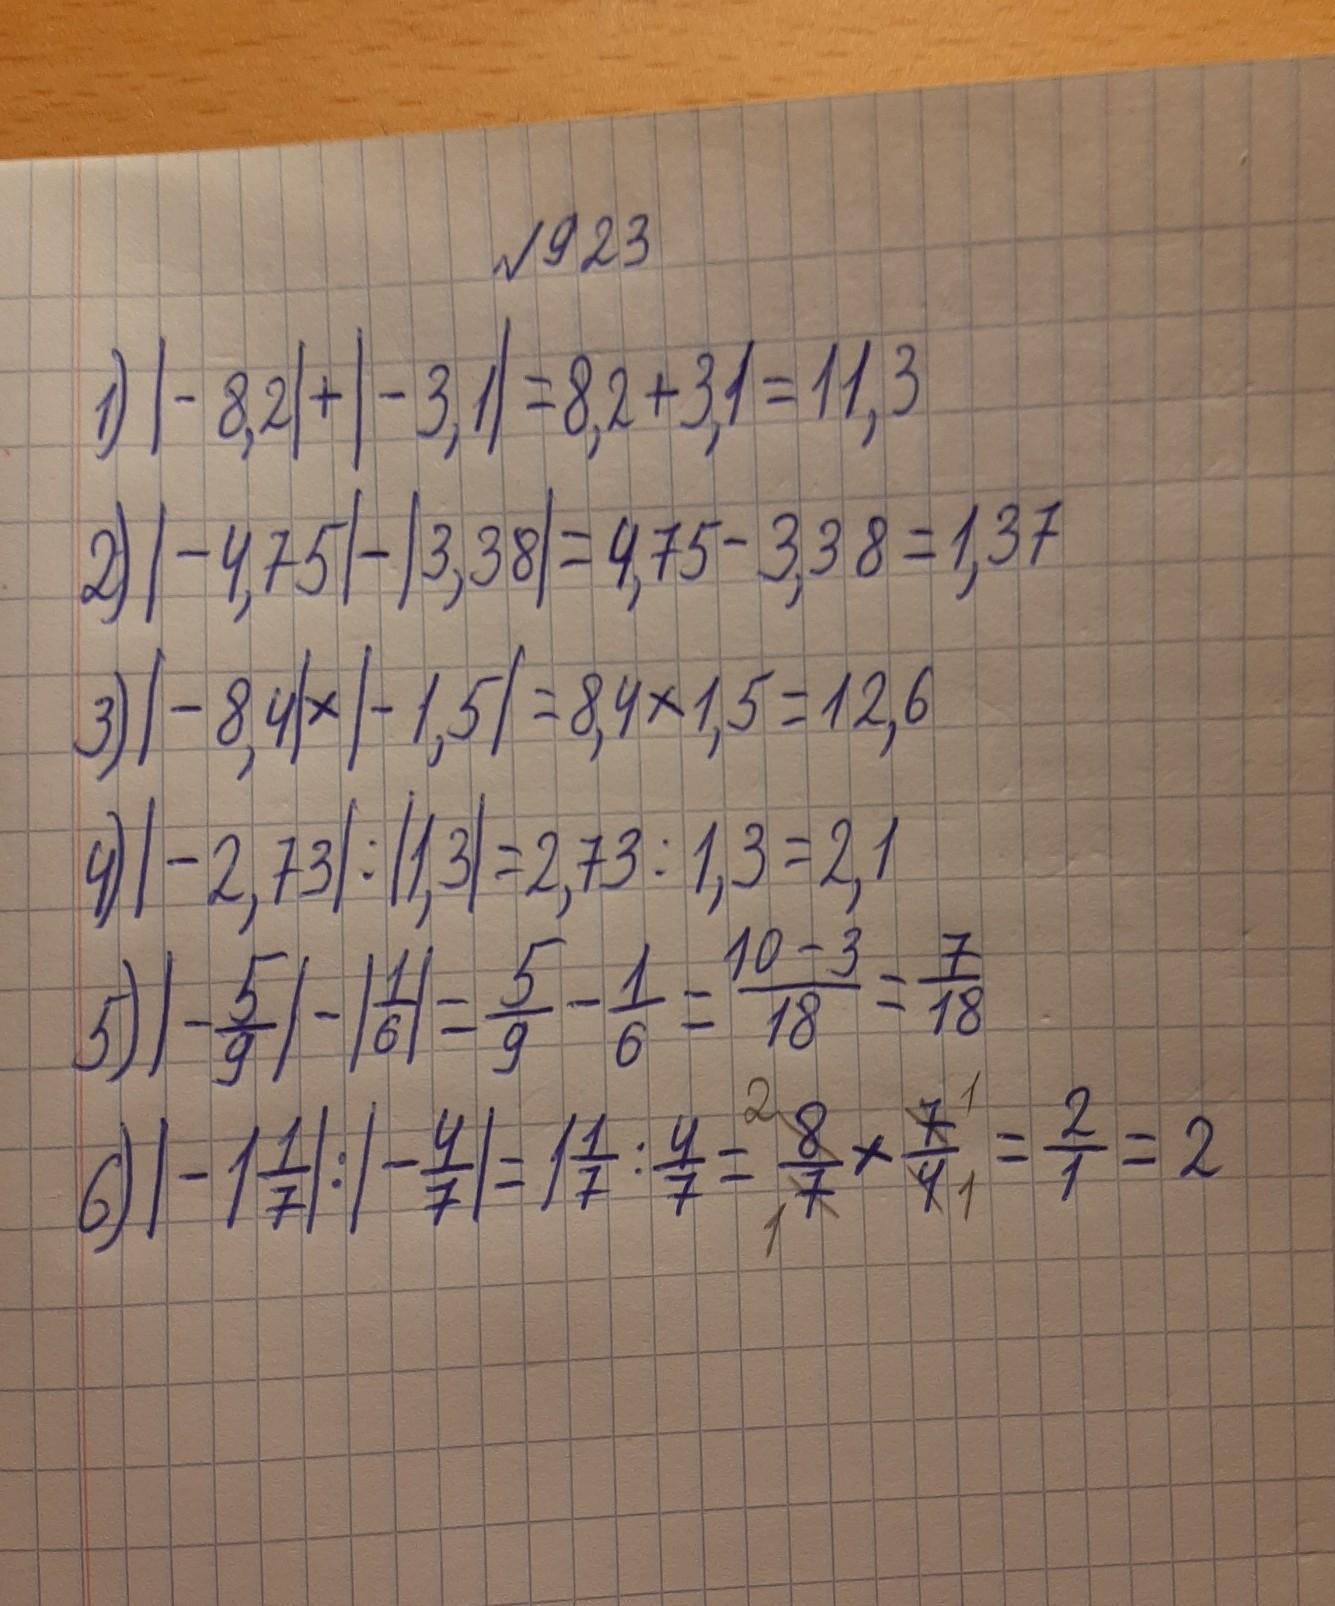 √923
1) |-8,2|+|-3,1|=8,2+3,1=11,3
2) |-4,75|-|3,38|=4,75-3,38=1,37
3) |-8,4|×|-1,5|=8,4×1,5=12,6
4) |-2,73|:|1,3|=2,73:1,3=2,1
5) |-5/9|-|1/6|=5/9-1/6=(10-3)/18=7/18
6) |-1 1/7|:|-4/7|=1 1/7:4/7= 2 8/7 1 × 7/4 1 1 =2/1=2